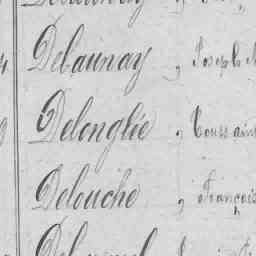 Delaunay, Joseph
Delonglée, Toussaint
Delouche, François